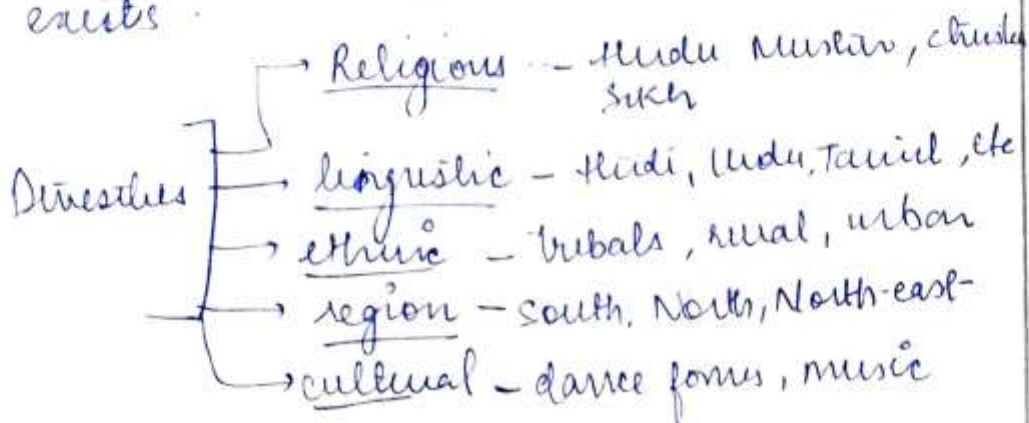 exists.
Religious - Hindu Muslim,
Sikh
Diversities
linguistic - Hindi, Urdu, Tamil, etc
ethnic - tribals, rural, urban
region - South, North, North-east-
cultural - dance forms, music